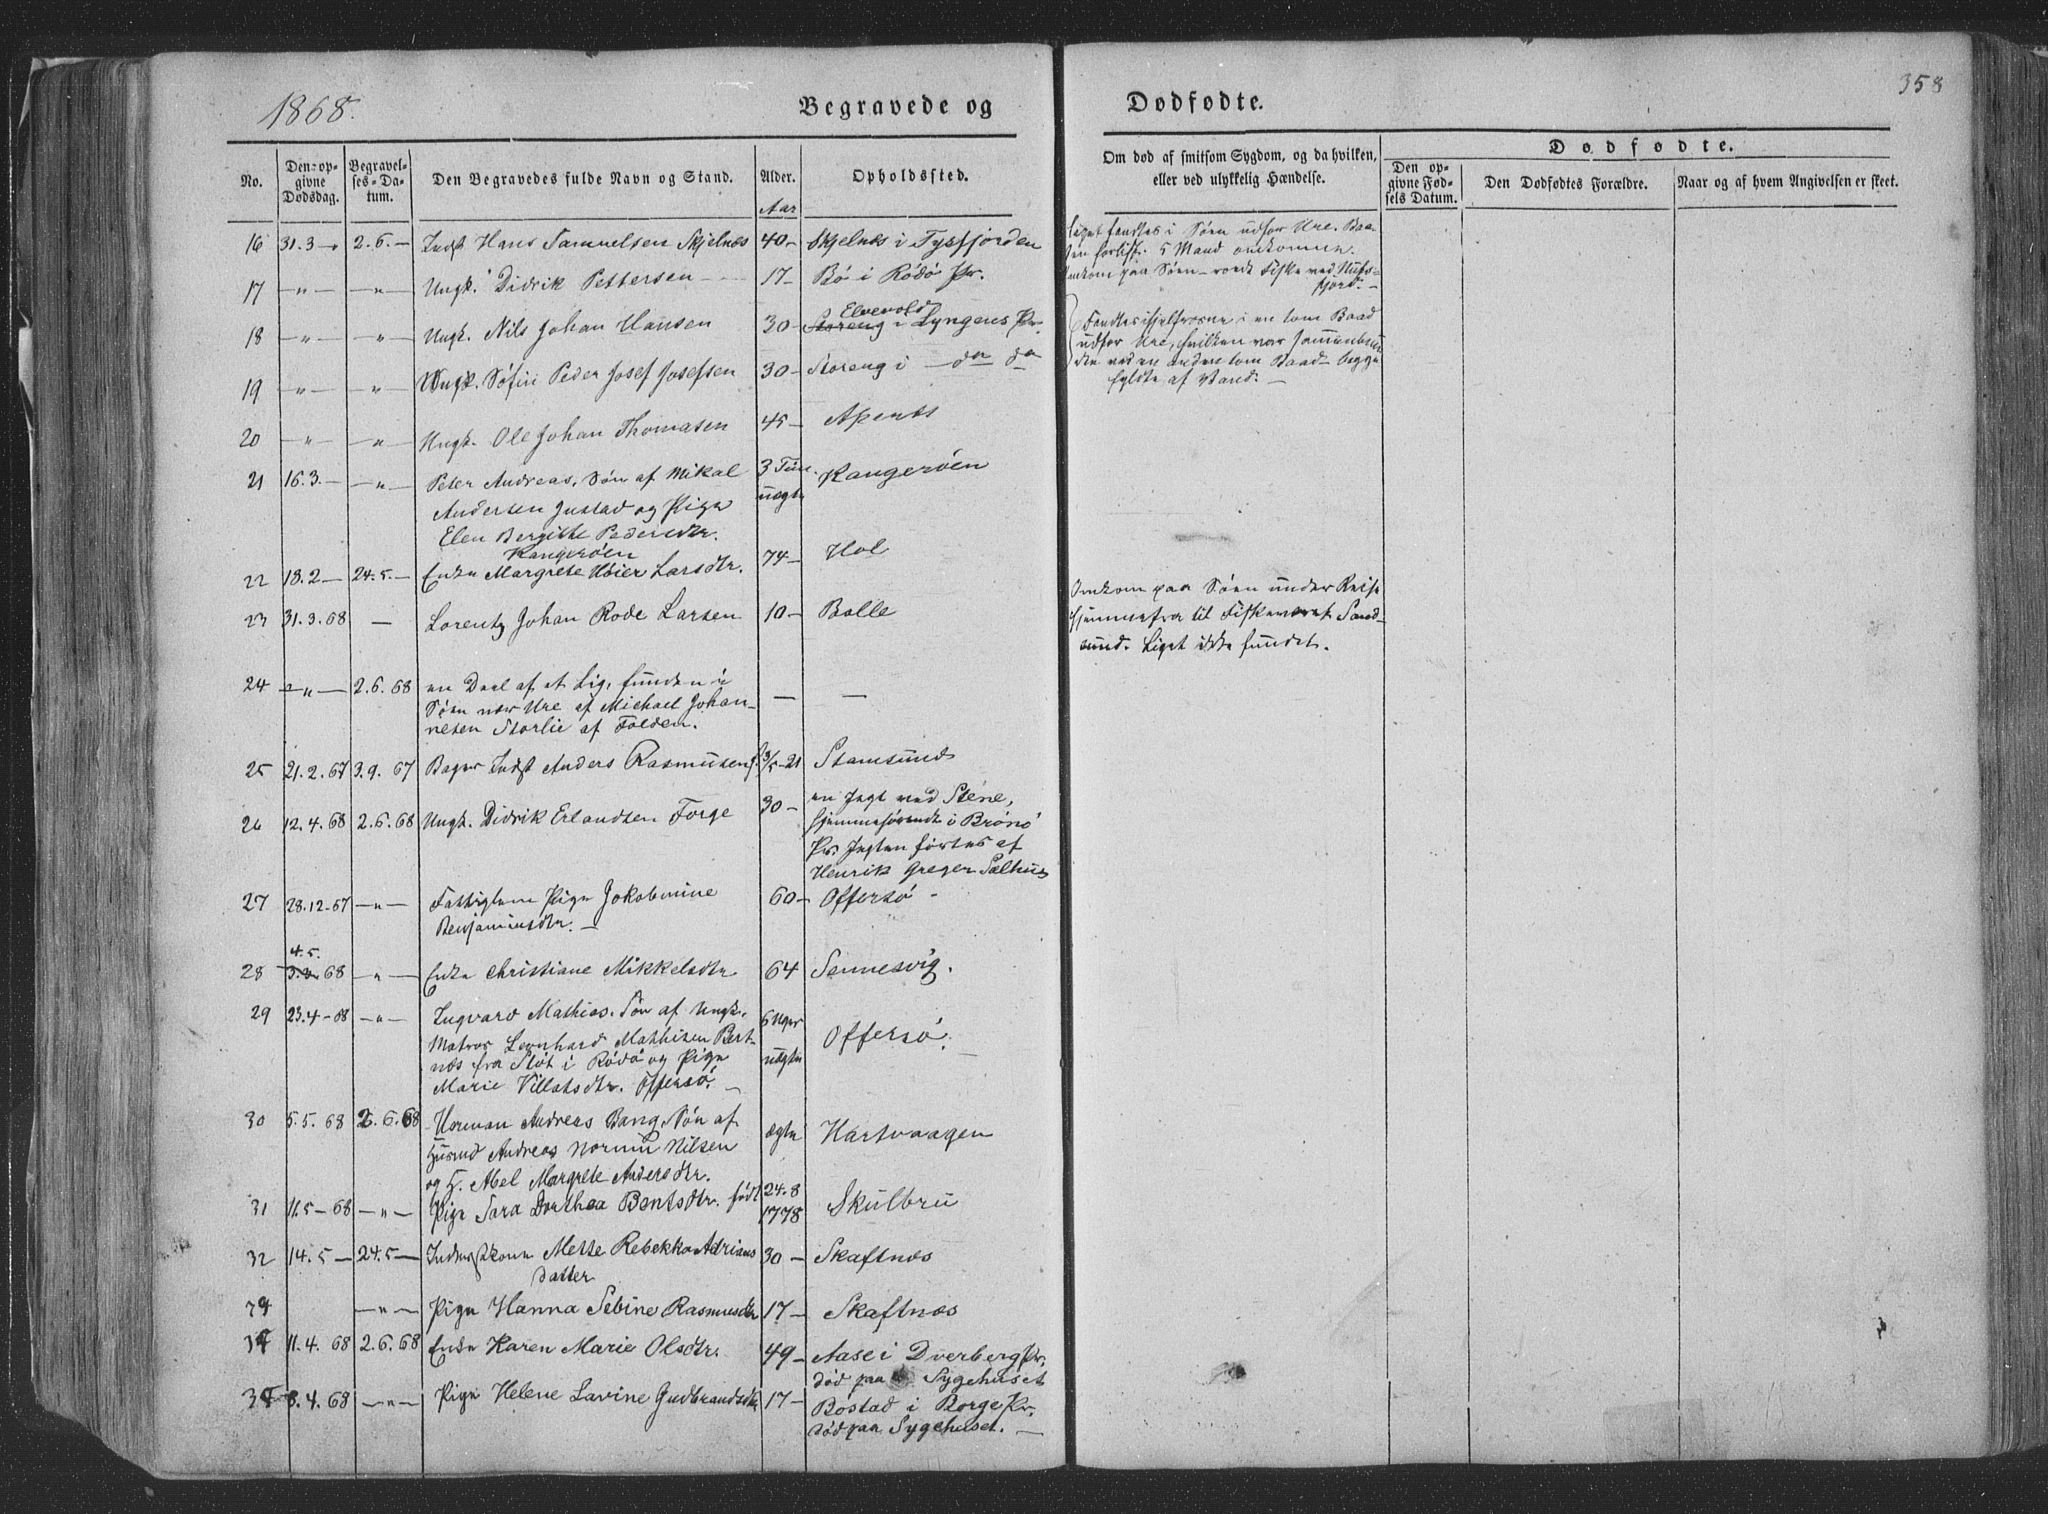 358
1868.
Begravede og Dødfødte.
No.
Den opgivne Dødsdag.
Begravelses-Datum.
Den Begravedes fulde Navn og Stand.
Alder.
Aar
Opholdssted.
Om død af smitsom Sygdom, og da hvilken,
eller ved ulykkelig Hændelse.
Dødfødte.
Den opgivne Fødsels Datum.
Den Dødfødtes Forældre.
Naar og af hvem Angivelsen er skeet.
16 31.3 — 2.6. — Indst Hans Samuelsen Skjelnæs 40 — Skjelnæs i Tysfjorden
Liget fandtes i Søen udfor Ure. Baa-
den forlist. 5 Mand omkomne.
17 — " — — " — Ungk. Didrik Pettersen 17 — Bø i Rødø Pr.
Omkom paa Søen — roede Fiske ved Nufs-
fjord. —
18 — " — — " — Ungk. Nils Johan Hansen 30 — Storeng Elvevold i Lyngens Pr.
Fandtes ihjelfrosne i en tom Baad
udfor Ure, hvilken var sammenbun-
den ved en anden tom Baad — begge
fyldte af Vand. —
19 — " — — " — Ungk. Søfin Peder Josef Josefsen 30 — Storeng i — do do
20 — " — — " — Ungk. Ole Johan Thomasen 45 — Apenæs
21 16.3. — — " — Peter Andreas, Søn af Mikal 3 Tim. Kangerøen
Andersen Justad og Pige uægte
Elen Bergithe Pedersdtr.
Kangerøen
22 18.2 — 24.5. — Enke Margrete Høier Larsdtr. 74 — Hol
23 31.3.68 — Lorentz Johan Rode Larsen 10 — Bolle
Omkom paa Søen under Reise
hjemmefra til Fiskeværet Sand-
sund. Liget ikke fundet.
24 — " — 2.6.68 en Deel af et Lig, funden i — —
Søen nær Ure af Michael Johan-
nesen Storlie af Folden.
25 21.2.67 3.9.67 Bager Indst Anders Rasmusen f. 3/5-21 Stamsund
26 12.4.68 2.6.68 Ungk. Didrik Erlandsen Forge 30 — en Jagt ved Stene,
hjemmehørende i Brønø
Pr. Jagten førtes af
Henrik Greger Sælhus
27 28.12-67 — " — Fattiglem Pige Jakobmine 60 — Offersø
Benjaminsdtr. —
28 4.5. 68 — " — Enke Christiane Mikkelsdtr 64 Sennesvig.
29 23.4-68 — " — Ingvard Mathias. Søn af Ungk. 6 Uger Offersø.
Matros Leonhard Mathisen Bert- uægte
næs fra Støt i Rødø og Pige
Marie Villatsdtr. Offersø. —
30 5.5.68 2.6.68 Herman Andreas Bang, Søn af ægte Hartvaagen
Husmd Andreas Normu Nilsen
og H. Abel Margrete Andersdtr.
31 11.5-68 — " — Pige Sara Dorthea Bentsdtr. født 24.8 1778 Skulbru
32 14.5 — 24.5 — Inderstkone Mette Rebekka Adrians 30 — Skaftnæs
datter
— " — Pige Hanna Sebine Rasmusdtr 17 — Skaftnæs
34 11.4.68 2.6.68 Enke Karen Marie Olsdtr. 49 — Aase i Dverberg Pr.
død paa Sygehuset
35 8.4.68 — " — Pige Helene Lavine Gudbrandsdtr 17 — Bøstad i Borge Pr.
død paa Sygehuset. —